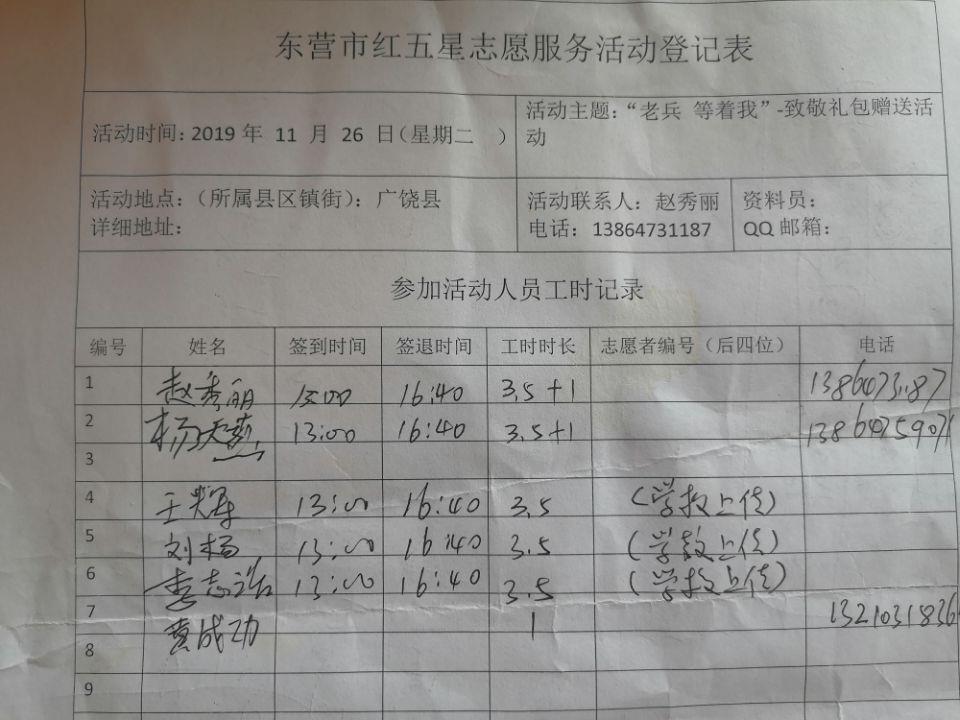 东营市红五星志愿服务活动登记表
活动时间：2019 年 11 月 26 日（星期二 ） 活动主题：“老兵 等着我”-致敬礼包赠送活
动
活动地点：（所属县区镇街）：广饶县 活动联系人：赵秀丽 资料员：
详细地址： 电话：13864731187 QQ 邮箱：
参加活动人员工时记录
编号 姓名 签到时间 签退时间 工时时长 志愿者编号（后四位） 电话
1 赵秀丽 13:00 16:40 3.5+1
2 13:00 16:40 3.5+1
3
4 王 13:00 16:40 3.5 (学校上传)
5 刘杨 13:00 16:40 3.5 (学校上传)
6 李志浩 13:00 16:40 3.5 (学校上传)
7 黄成功 1 1321031836
8
9